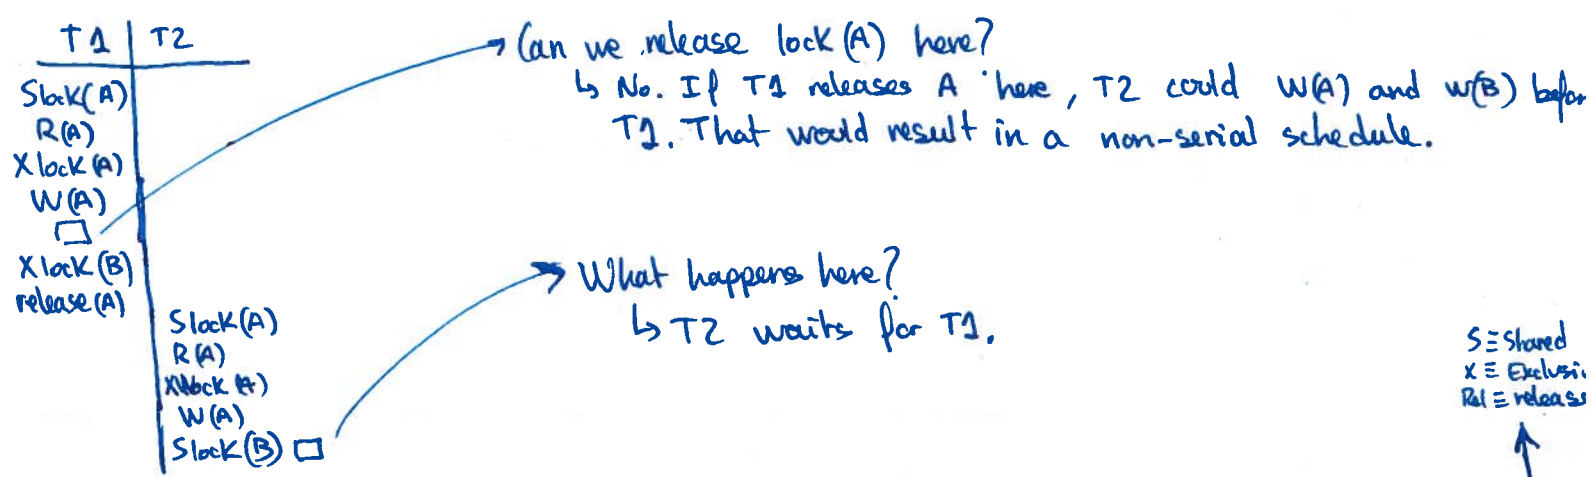 T1 T2
Slock(A)
R(A)
Xlock(A)
W(A)
Xlock(B)
release(A)
Slock(A)
R(A)
Xlock(A)
W(A)
Slock(B)
Can we release lock(A) here?
↳ No. If T1 releases A here, T2 could W(A) and W(B) befor
T1. That would result in a non-serial schedule.
What happens here?
↳ T2 waits for T1.
S ≡ Shared
X ≡ Exclusi
Rel ≡ releas